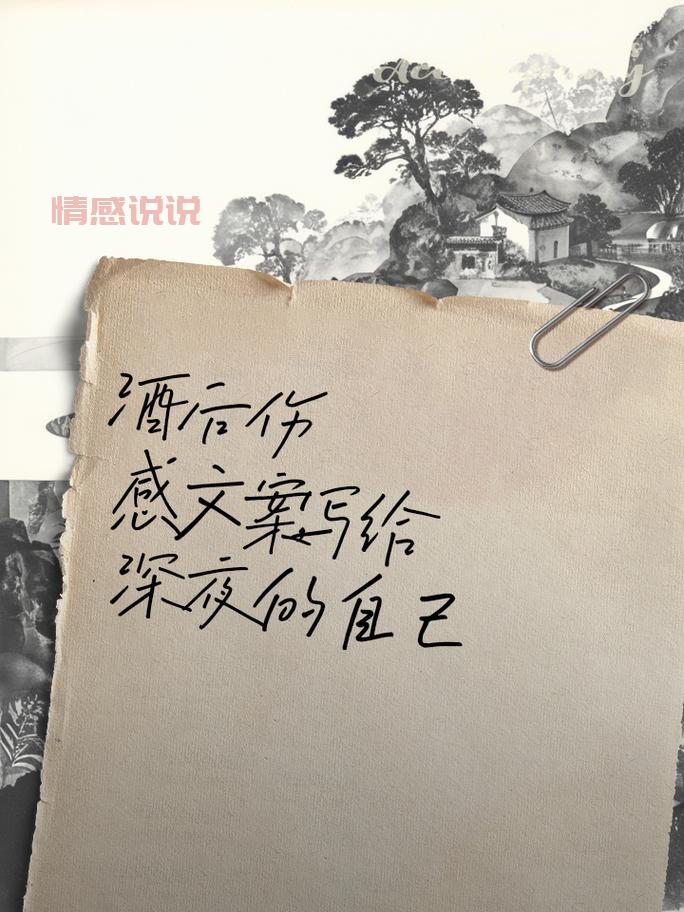 情感说说
酒后伤
感文案写给
深夜的自己